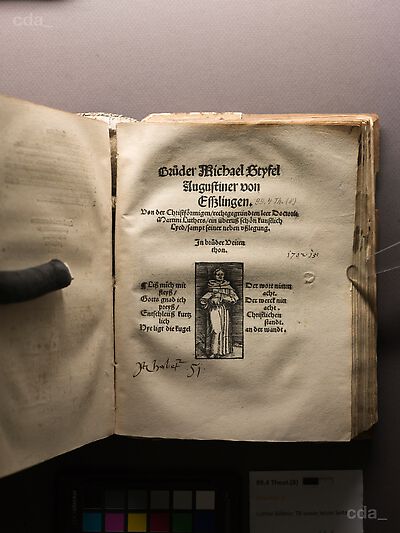 cda_
Brůder Michael Styfel
Augustiner von
Eßzlingen.
Von der Christförmigen/ rechtgegründten leer Doctoris
Martini Luthers/ ein überuß schön kunstlich
Lyed/ sampt seiner neben vßlegung.
In brůder Veiten
thon.
Liß mich mit
fleyß/
Gotts gnad ich
preyß/
Entschleüß kurtz
lich
Hye ligt die kugel
Der wort nimm
acht.
Der werck nit
acht.
Christlichen
standt.
an der wandt.
51.
cda_